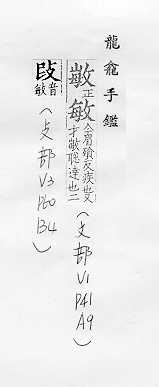 龍龕手鑑
正敏今眉殞反疾也又
才敏聡達也二
(文部 V1 P41 A9)
音敏
(攴部 V3 P60 B4)